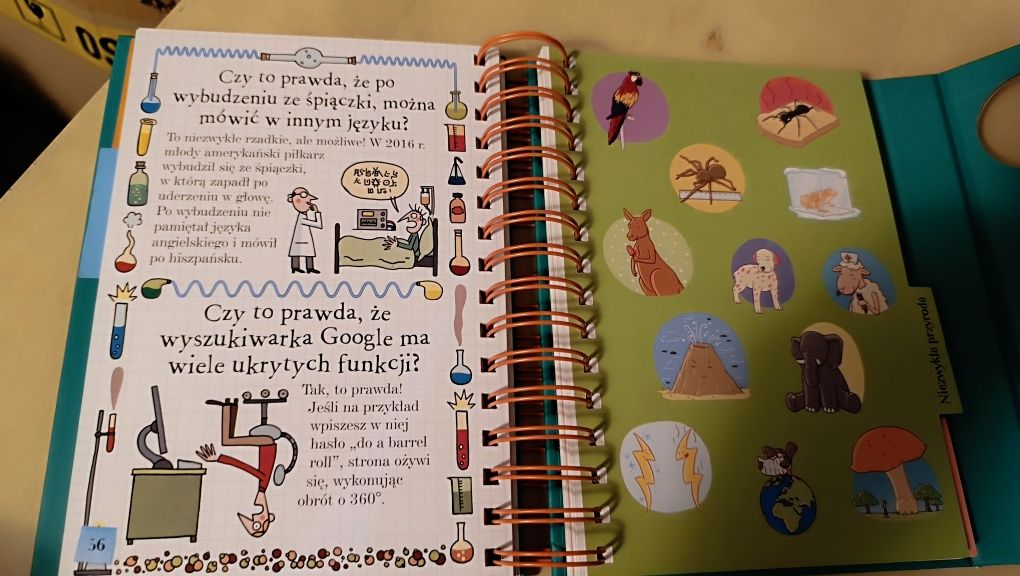 Czy to prawda, że po
wybudzeniu ze śpiączki, można
mówić w innym języku?
To niezwykle rzadkie, ale możliwe! W 2016 r.
młody amerykański piłkarz
wybudził się ze śpiączki,
w którą zapadł po
uderzeniu w głowę.
Po wybudzeniu nie
pamiętał języka
angielskiego i mówił
po hiszpańsku.
Czy to prawda, że
wyszukiwarka Google ma
wiele ukrytych funkcji?
Tak, to prawda!
Jeśli na przykład
wpiszesz w niej
hasło „do a barrel
roll”, strona ożywi
się, wykonując
obrót o 360°.
56
Niezwykła przyroda